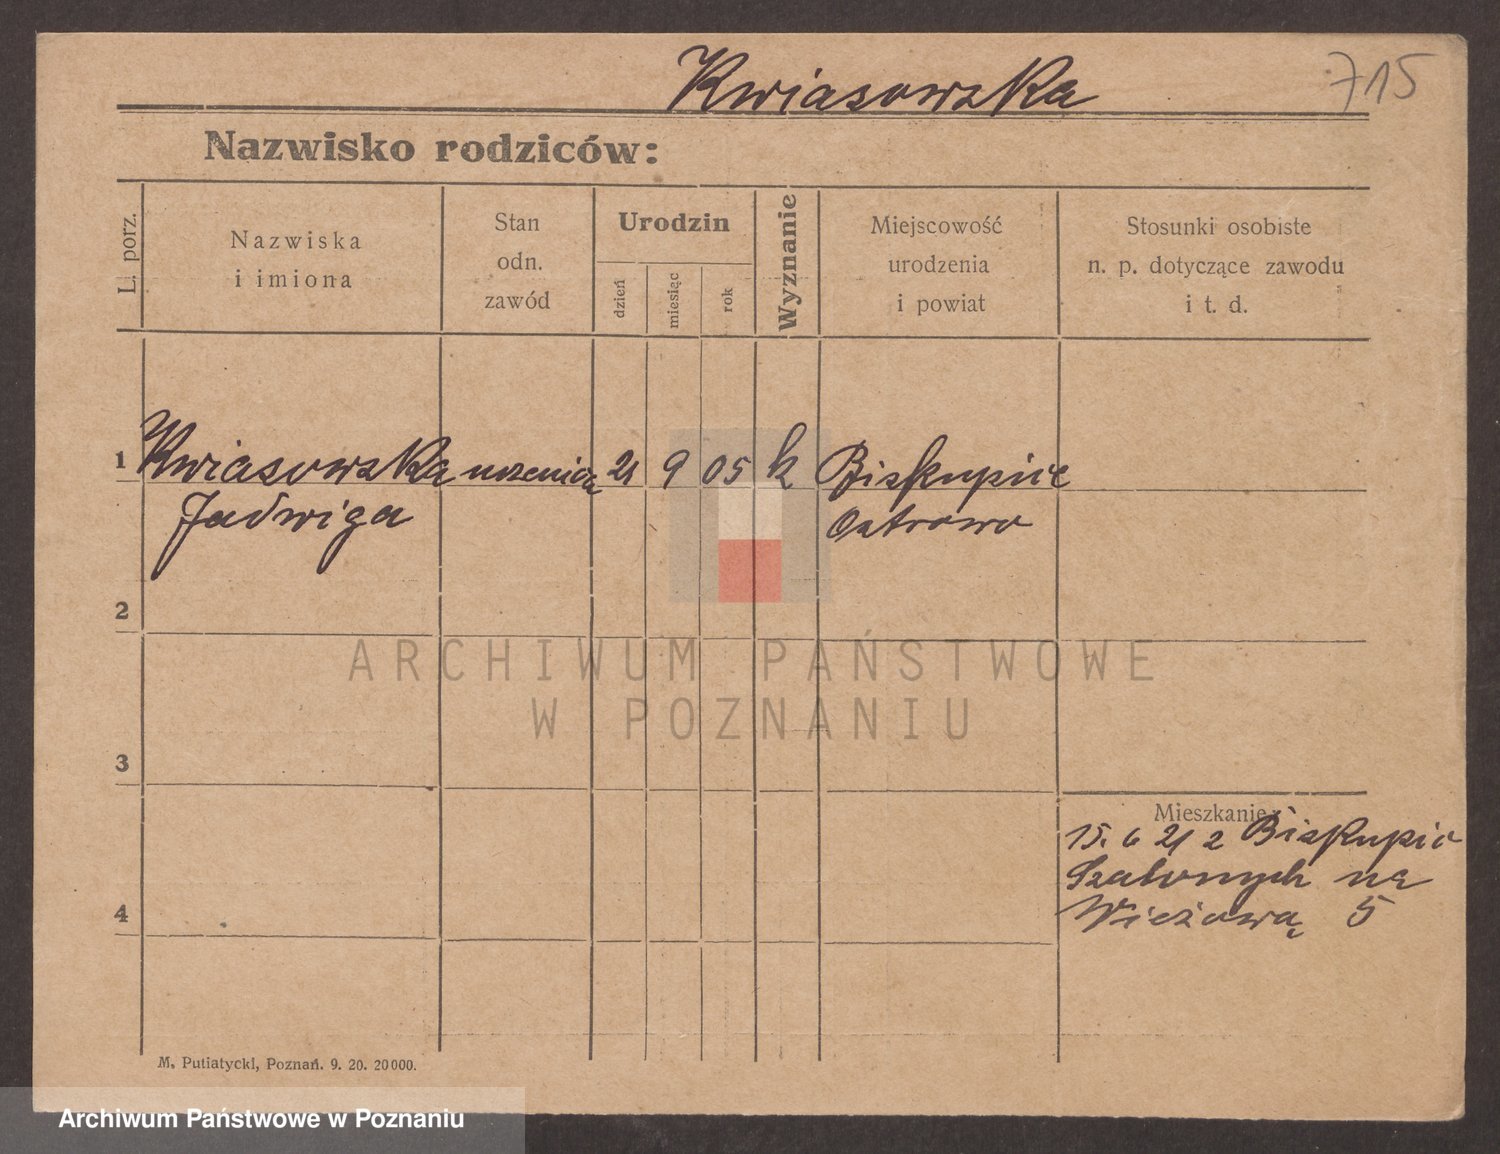 Kwiasowska
715
Nazwisko rodziców:
L. porz.
Nazwiska
i imiona
Stan
odn.
zawód
Urodzin
dzień
miesiąc
rok
Wyznanie
Miejscowość
urodzenia
i powiat
Stosunki osobiste
n. p. dotyczące zawodu
i t. d.
1 Kwiasowska uczenica 21 9 05 k Biskupice
Jadwiga Ostrowo
2
ARCHIWUM PAŃSTWOWE
W POZNANIU
3
Mieszkanie:
15. 6 21 z Biskupic
Szalonych na
Wieżową 5
4
M. Putiatycki, Poznań. 9. 20. 20000.
Archiwum Państwowe w Poznaniu